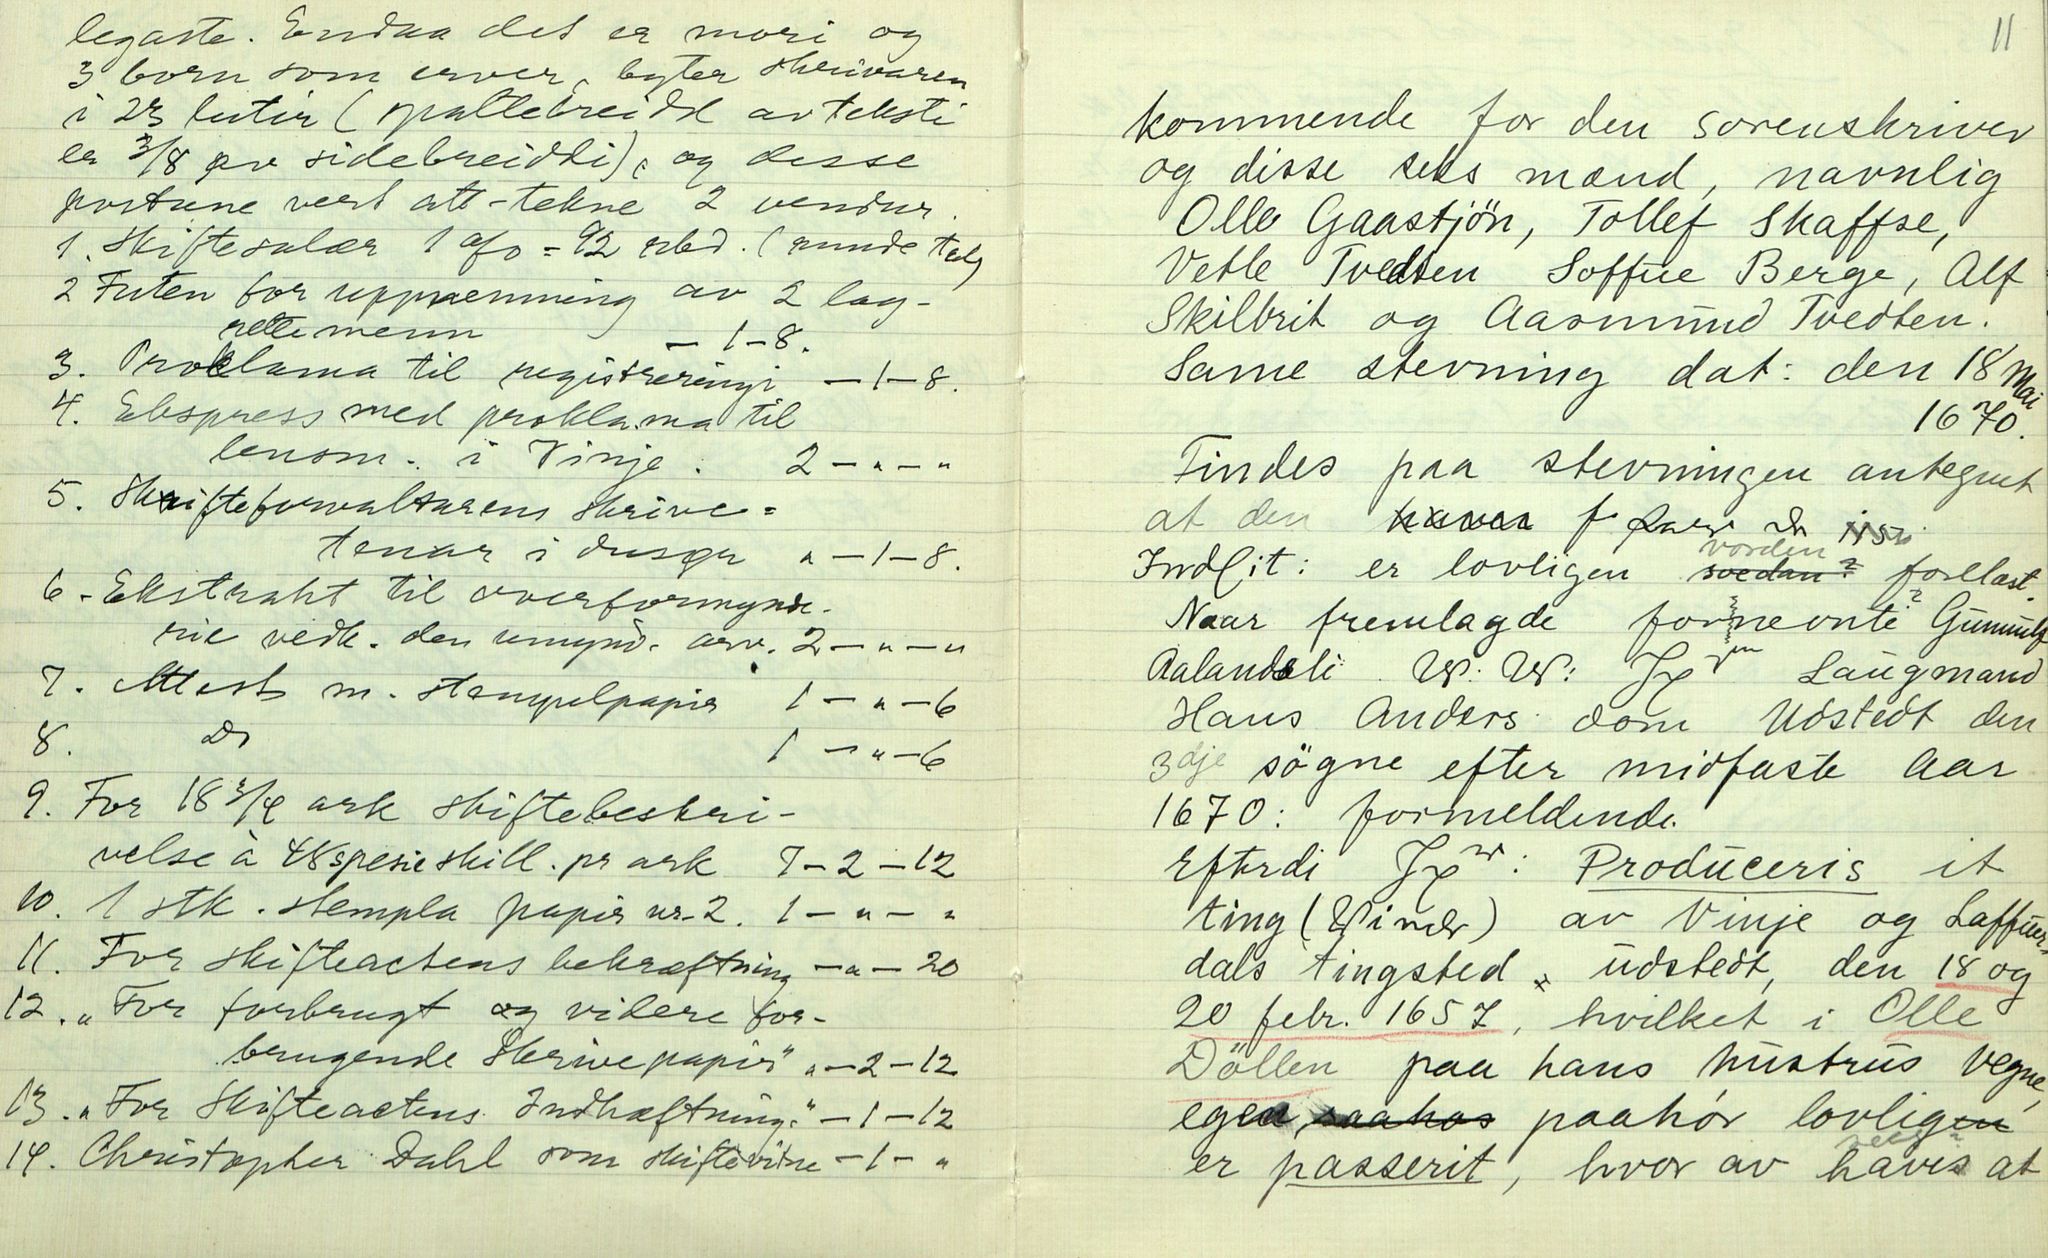 legaste. Endaa det er mori og
3 born som erver, byter skrivaren
i 23 lutir (spaltebreidd av teksti
er 3/8 av sidebreiddi), og desse
postane vert att-tekne 2 vendur.
1. Skiftesalær 1 % = 92 rbd. (runde tal)
2 Futen for uppnemning av 2 lag-
rettemenn — 1 — 8.
3. Proklama til registreringi — 1 — 8.
4. Ekspress med proklama til
lensm. i Vinje. 2 — " — "
5. Skifteforvaltarens skrive=
tenar i " — 1 — 8.
6 - Ekstrakt til overformynde-
rie vedk. den umynd. arv. 2 — " — "
7. Attest m. stempelpapir 1 — " — 6
8. Do 1 — " — 6
9. For 18 3/4 ark skiftebeskri-
velse à 48 spesieskill. pr ark 7 — 2 — 12
10. 1 stk. stempla papir nr. 2. 1 — " — "
11. For skifteactens bekræftning — " — 20
12. " For forbrugt og videre for-
brugende Skrivepapir" " — 2 — 12
13. " For Skifteactens Indhæftning." — 1 — 12
14. Christopher Dahl som skiftevitne — 1 — "
11
kommende for den sorenskriver
og disse seks mænd, navnlig
Olle Gaastjön, Tollef Skaffse,
Vetle Tvedten Soffue Berge, Alf
Skilbrit og Aasmund Tvedten.
Same stevning dat: den 18 Mai
1670.
Findes paa stevningen antegnet
at den
Ind(it: er lovligen vorden svedan? forelæst.
Naar fremlagde fornevnte Gunnulf
Aalandsli W: W: Laugmand
Hans Anders dom Udstedt den
3dje søgne efter midfaste Aar
1670: formeldende.
Efterdi Produceris it
ting (Vinde) av Vinje og Laffuer-
dals tingsted x udstedt, den 18 og
20 febr. 1657, hvilket i Olle
Döllen paa hans hustrus vegne,
egen, saahos paahør lovligen
er passerit, hvor av haves at